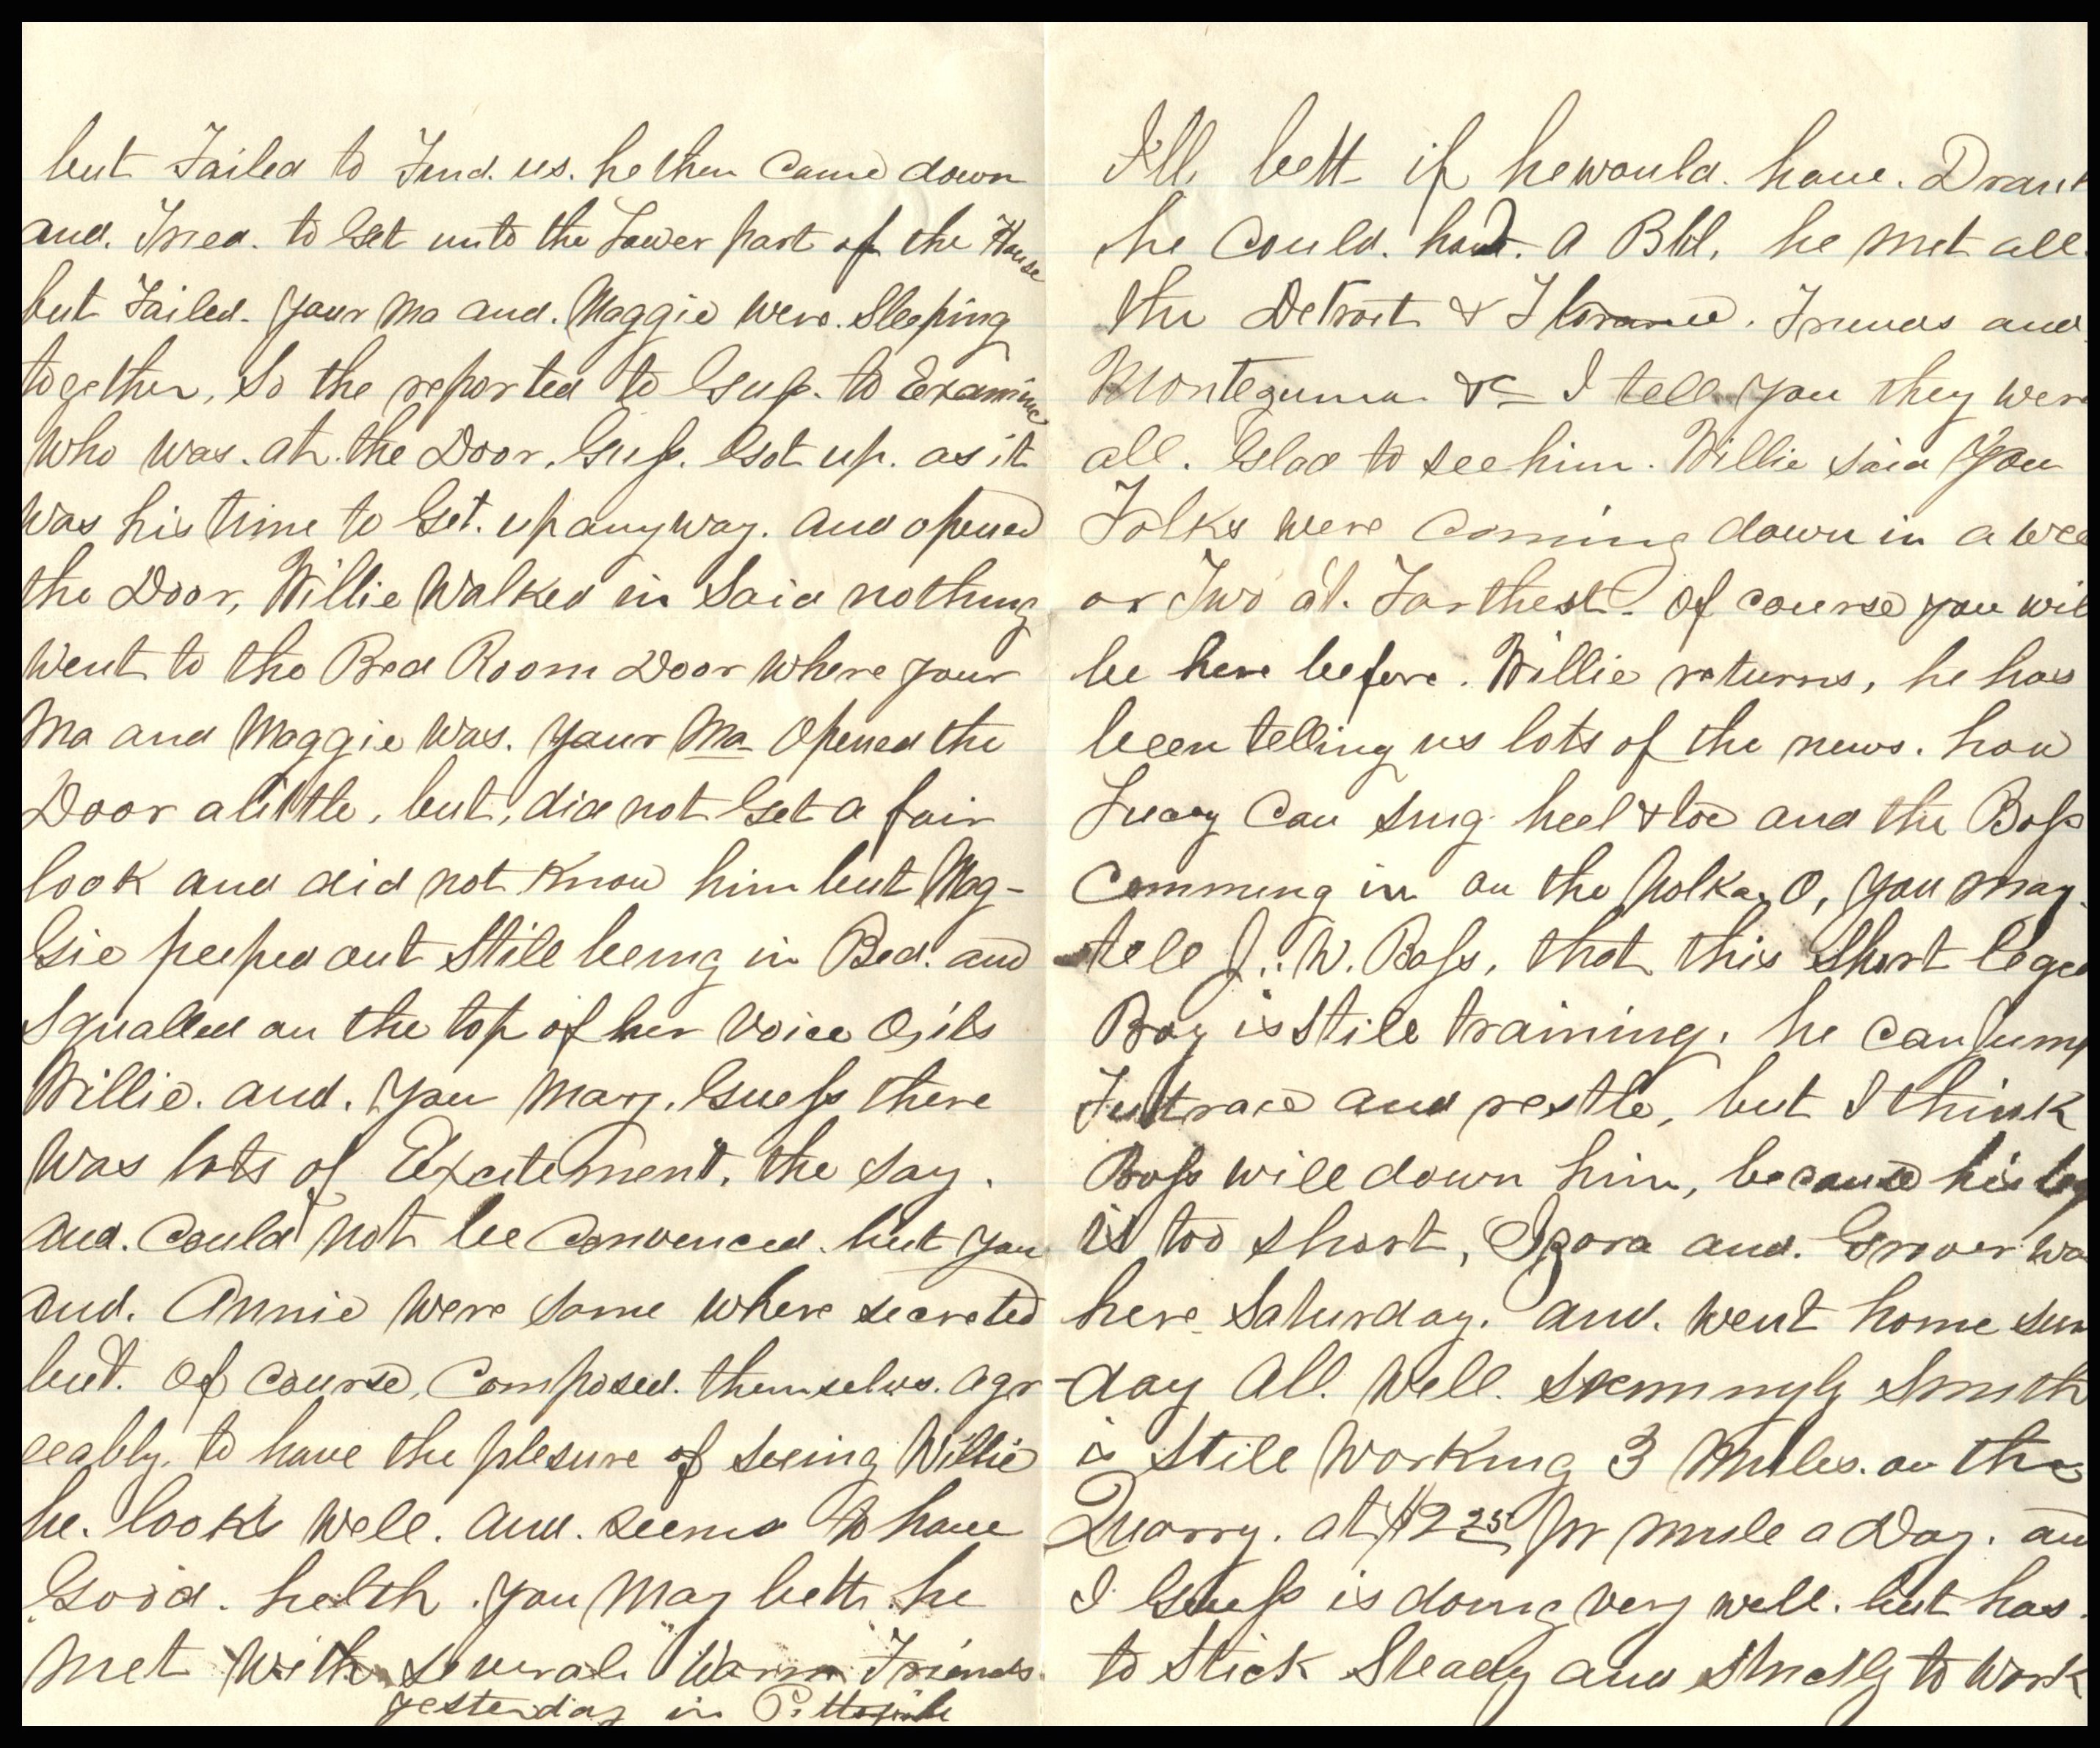 but Failed to Find. us. he then Came down
and. Tried. to Get into the Lower part of the House
but Failed. your Ma and. Maggie were. Sleeping
together, So the reported to Gus. to Examine
who was. at. the Door. Guss. Got up. as it
was his time to Get. up any way. and opened
the Door, Willie Walked in Said nothing
Went to the Bed Room Door where your
Ma and Maggie was. your Ma Opened the
Door a little, but, did not Get a fair
look and did not Know him but Mag-
Gie peeped out Still being in Bed. and
Squalled on the top of her Voice O, its
Willie. and. you May. Guess there
Was lots of Excitement. the say.
and. Could not be Convenced. but you
and. Annie were some where secreted
but. of Course, Composed. themselvs. agr
eeably. to have the plesure of seeing Willie
he. looks well. and. seems to have
Good. helth. you May bett he
met with several "Warm" Friends.
yesterday in
I'll bett if he would. have. Drank
he Could. had. a Bbl, he met all.
the Detroit & Florance. Friends and.
Montezuma &c I tell you they were
all. Glad to see him. Willie said you
Folks were Coming down in a wee
or Two at. Farthest. of course you wil
be here before. Willie returns, he has
been telling us lots of the news. how
Lucy Can sing heel & toe and the Boss
Comming in on the Polka, O, you may.
tell J. W. Boss, that this Short leged
Boy is Still training. he can Jump
Futtrace and restle, but I think
Boss will down him, because his leg
is too short, Izora and. Grover wa
here Saturday. and. went home sun
-day All. Well. seemingly Smith
is Still Working 3 Mules. on the
Quarry. at $2 25 pr mule a Day. an
I Guess is doing very well. but has.
to Stick Steady and Strickly to Work